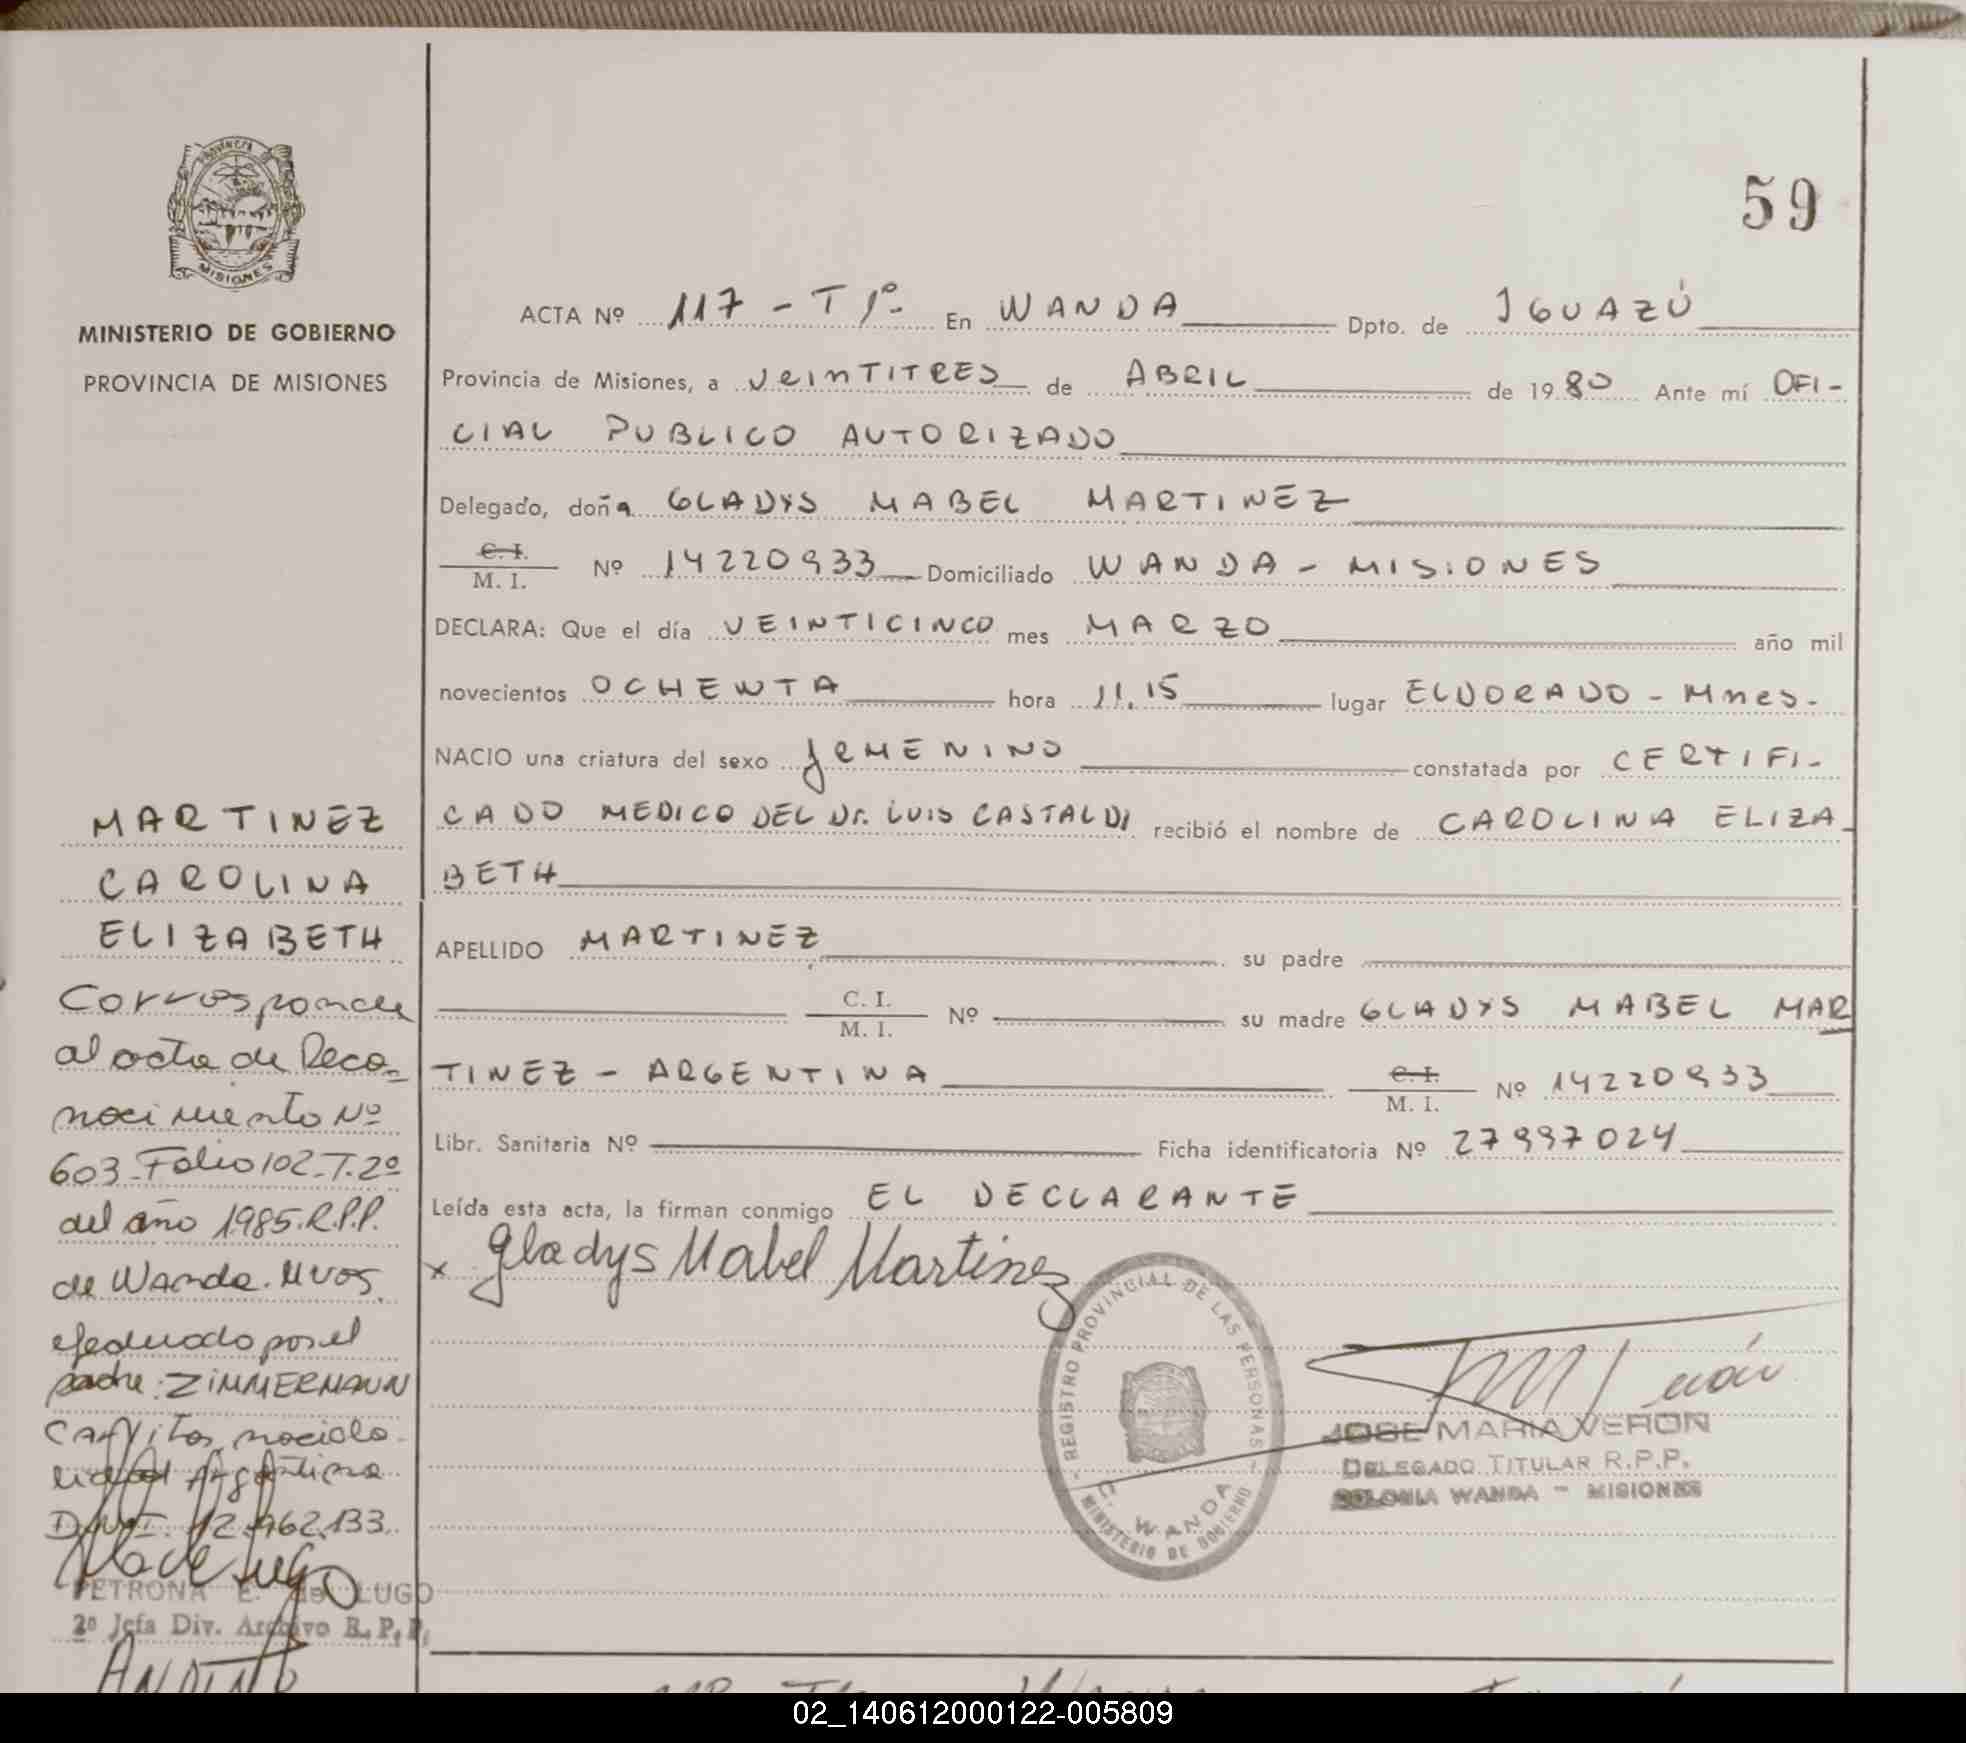 PROVINCIA
MISIONES
MINISTERIO DE GOBIERNO
PROVINCIA DE MISIONES
59
ACTA Nº 117 - T 1º- En WANDA Dpto. de IGUAZÚ
Provincia de Misiones, a VEINTITRES de ABRIL de 1980 Ante mí OFI-
CIAL PUBLICO AUTORIZADO
Delegado, doña GLADYS MABEL MARTINEZ
C. I.
M. I. Nº 14220933 Domiciliado WANDA - MISIONES
DECLARA: Que el día VEINTICINCO mes MARZO año mil
novecientos OCHENTA hora 11.15 lugar ELDORADO - Mnes-
NACIO una criatura del sexo FEMENINO constatada por CERTIFI-
CADO MEDICO DEL Dr. LUIS CASTALDI recibió el nombre de CAROLINA ELIZA-
BETH
APELLIDO MARTINEZ su padre
C. I.
M. I. Nº su madre GLADYS MABEL MAR
TINEZ - ARGENTINA C. I.
M. I. Nº 14220933
Libr. Sanitaria Nº Ficha identificatoria Nº 27997024
Leída esta acta, la firman conmigo EL DECLARANTE
x Gladys Mabel Martinez
MARTINEZ
CAROLINA
ELIZABETH
Corresponde
al acta de Reco-
nocimiento Nº
603-Folio 102-T.2º
del año 1985.R.P.P.
de Wanda. Mnes.
efectuado por el
padre: ZIMMERMANN
Carlitos, naciona-
lidad Argentina
D.N.I. 12.962.133.
PETRONA E. de LUGO
2ª Jefa Div. Archivo R.P.P.
REGISTRO PROVINCIAL DE LAS PERSONAS
C. WANDA
MINISTERIO DE GOBIERNO
JOSE MARIA VERON
DELEGADO TITULAR R.P.P.
COLONIA WANDA - MISIONES
02_140612000122-005809